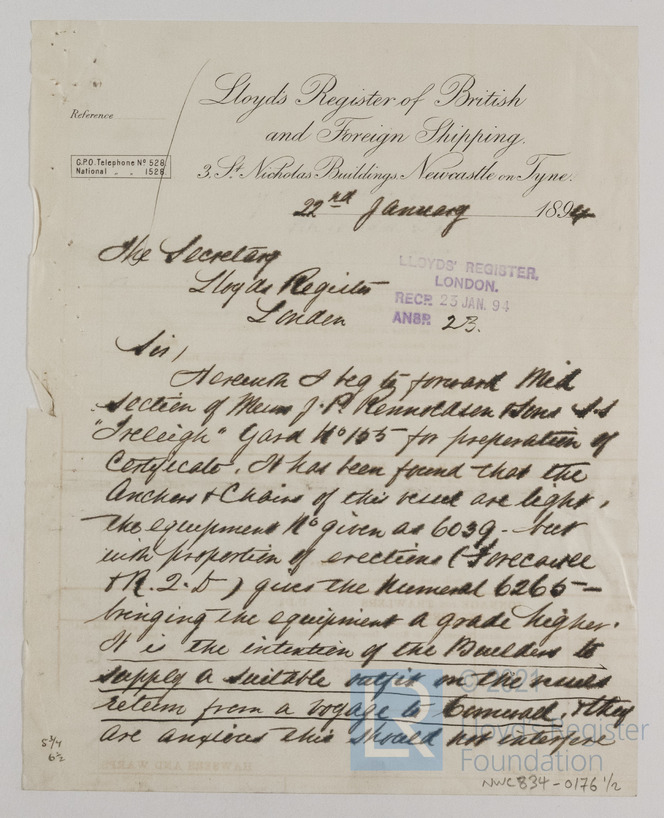 Lloyd's Register of British
and Foreign Shipping.
Reference
G.P.O. Telephone Nº 528
National " " 1528
3, St. Nicholas Buildings, Newcastle on Tyne.
22nd January 1894
The Secretary
Lloyds Register
London
LLOYDS' REGISTER,
LONDON.
RECP. 25 JAN. 94
ANSR. 23.
Sir,
Herewith I beg to forward Mid
section of Messrs J. P. Rennoldson & Sons S.S
"Treleigh" Yard Nº 155 for preparation of
Certificate. It has been found that the
Anchors & Chains of this vessel are light,
the equipment Nº given as 6039 - but
with proportion of erections (Forecastle
& R. 2. D) gives the Numeral 6265 -
bringing the equipment a grade higher.
It is the intention of the Builders to
supply a suitable outfit on the vessels
return from a voyage to & they
are anxious this should not interfere
5 3/4
6 1/2
© 2021
LR
Lloyd's Register
Foundation
HAWSERS AND WARPS
NWC834-0176 1/2